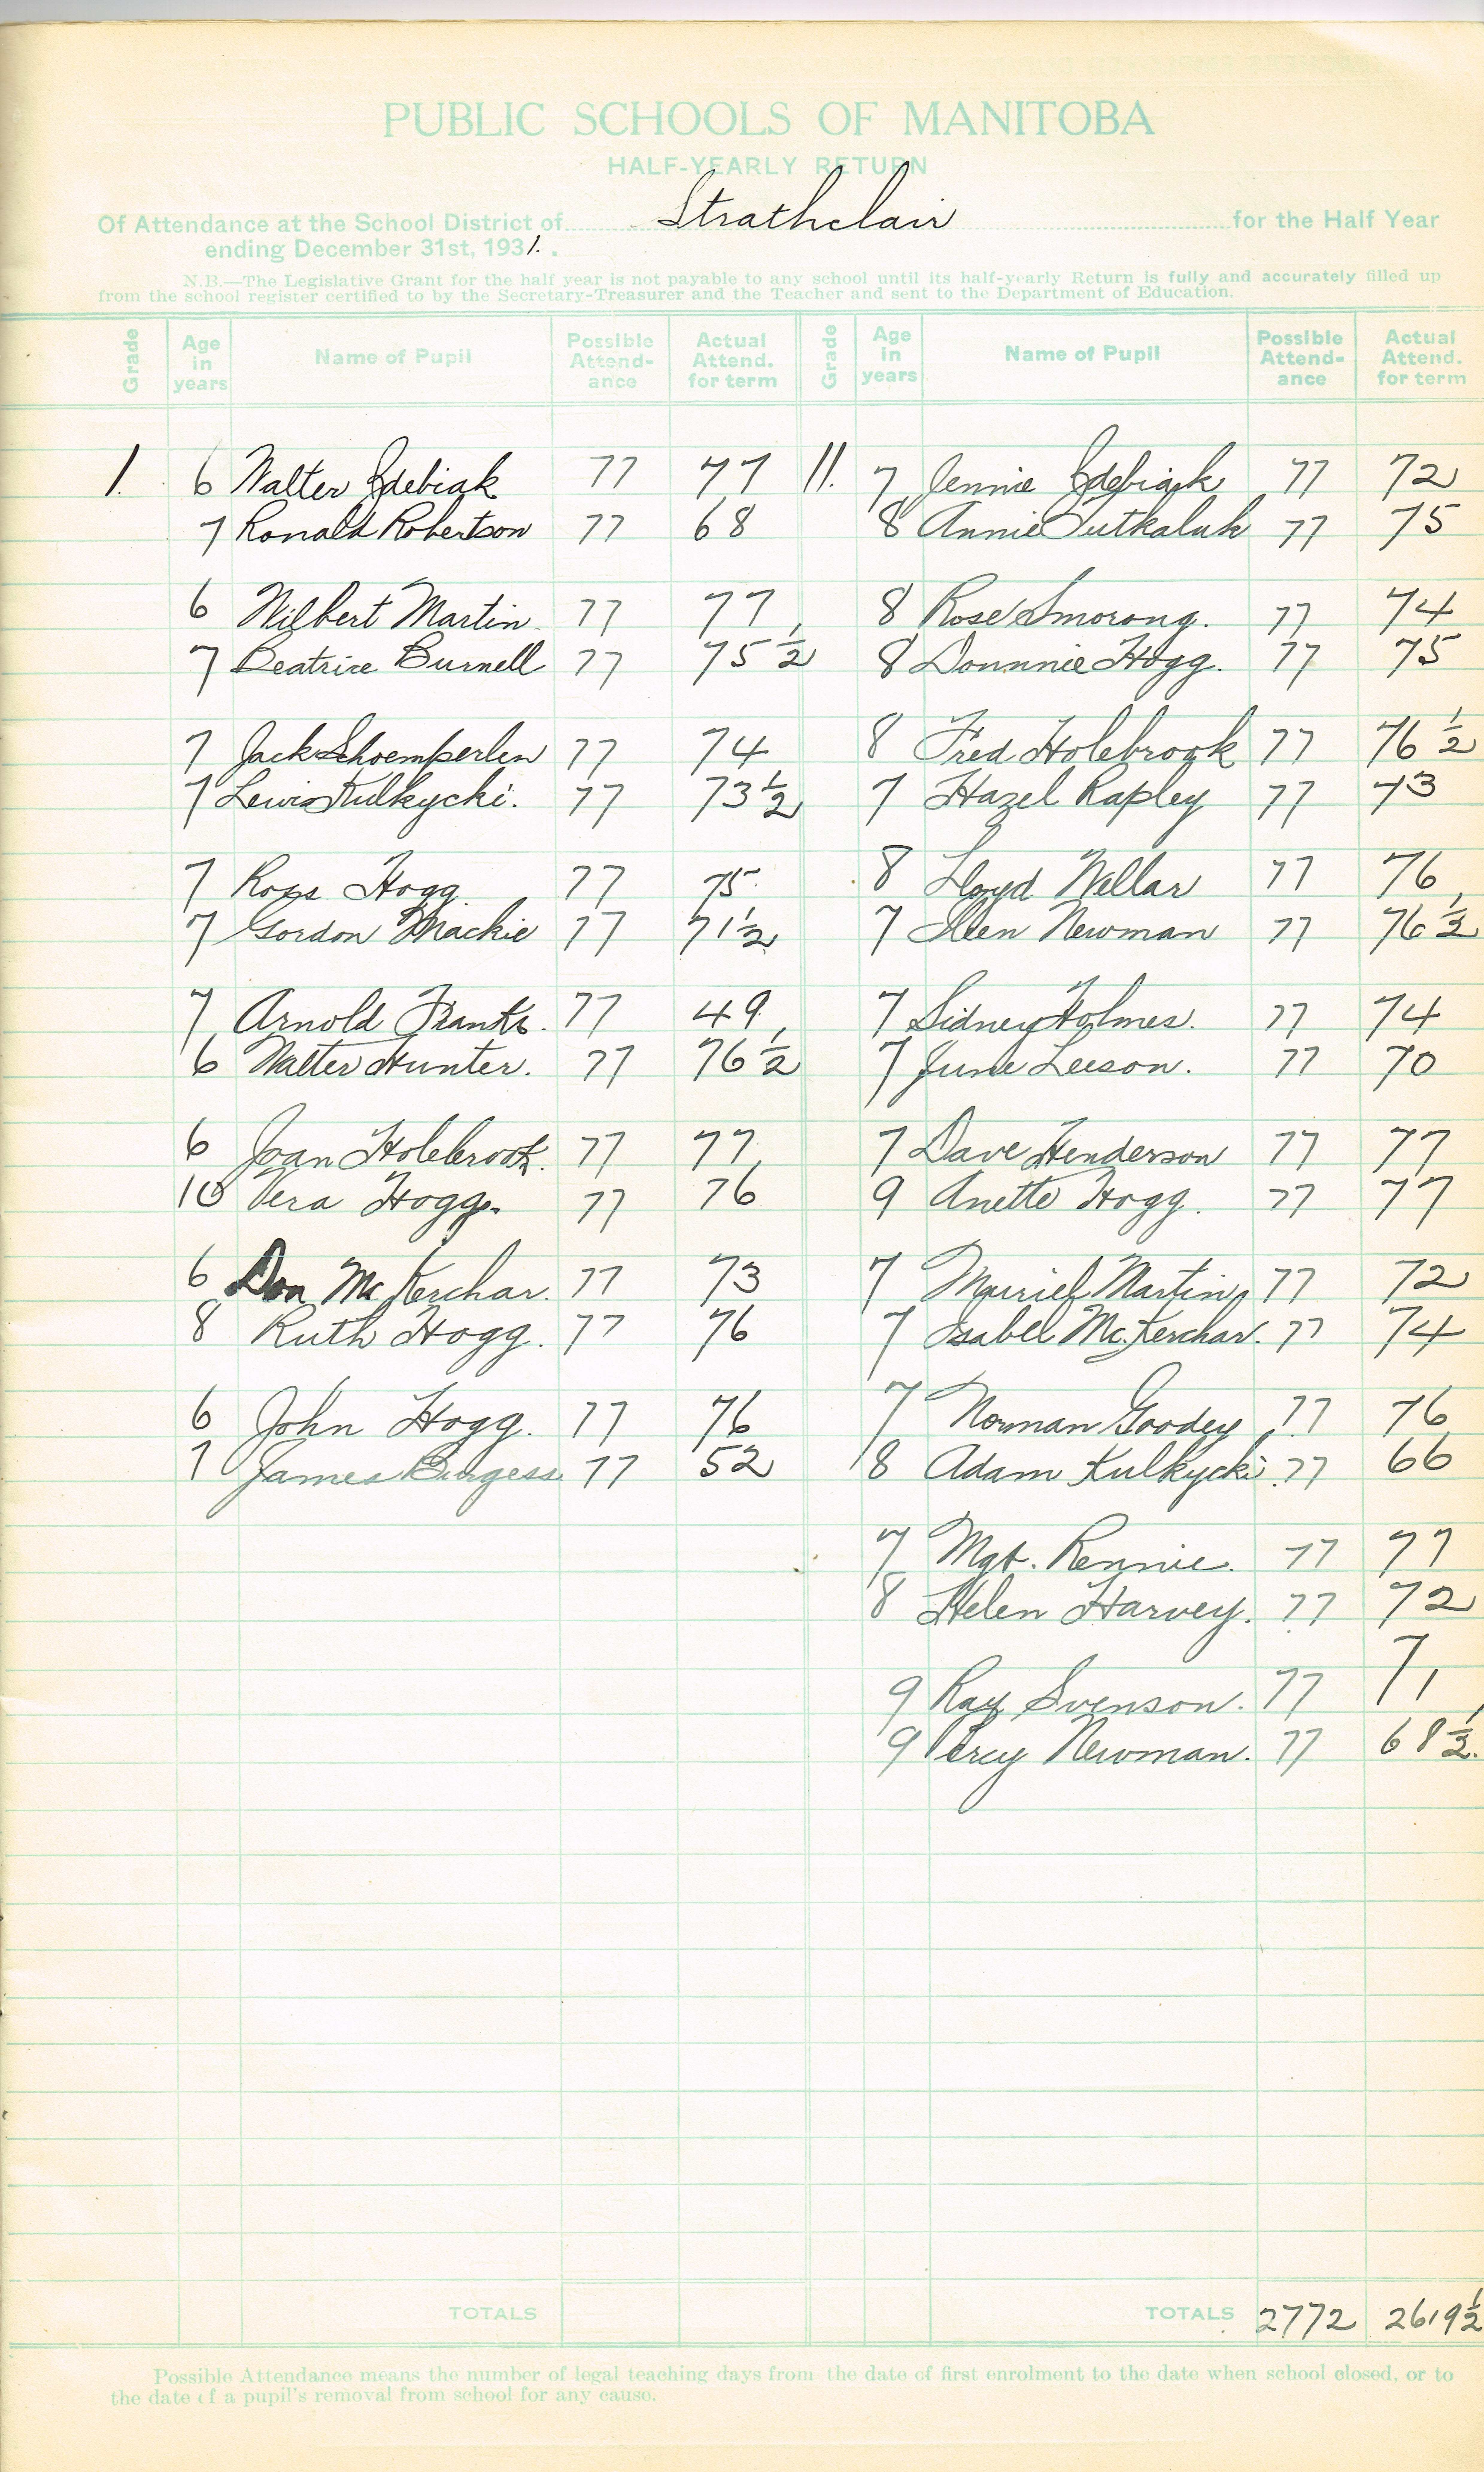 PUBLIC SCHOOLS OF MANITOBA
HALF-YEARLY RETURN
Of Attendance at the School District of Strathclair for the Half Year
ending December 31st, 1931.
N.B.—The Legislative Grant for the half year is not payable to any school until its half-yearly Return is fully and accurately filled up
from the school register certified to by the Secretary-Treasurer and the Teacher and sent to the Department of Education.
Grade Age in years Name of Pupil Possible Attend-ance Actual Attend. for term Grade Age in years Name of Pupil Possible Attend-ance Actual Attend. for term
1. 6 Walter Zdebiak 77 77 11. 7 Jennie Zdebiak 77 72
7 Ronald Robertson 77 68 8 Annie Tutkaluk 77 75
6 Wilbert Martin 77 77 8 Rose Smorong. 77 74
7 Beatrice Burnell 77 75 1/2 8 Donnnie Hogg. 77 75
7 Jack Shoemperlen 77 74 8 Fred Holebrook 77 76 1/2
7 Lewis Kulkycki. 77 73 1/2 7 Hazel Rapley 77 73
7 Ross Hogg 77 75 8 Lloyd Wellar 77 76
7 Gordon Mackie 77 71 1/2 7 Allen Newman 77 76 1/2
7 Arnold Franks. 77 49 7 Sidney Holmes. 77 74
6 Walter Hunter. 77 76 1/2 7 June Leeson. 77 70
6 Joan Holebrook. 77 77 7 Dave Henderson 77 77
10 Vera Hogg. 77 76 9 Anette Hogg. 77 77
6 Don McKerchar. 77 73 7 Muriel Martin 77 72
8 Ruth Hogg. 77 76 7 Isabel McKerchar. 77 74
6 John Hogg. 77 76 7 Norman Goodey 77 76
7 James Burgess 77 52 8 Adam Kulkycki 77 66
7 Mgt. Rennie. 77 77
8 Helen Harvey. 77 72
9 Ray Svenson. 77 71
9 Percy Newman. 77 68 1/2.
TOTALS TOTALS 2772 2619 1/2
Possible Attendance means the number of legal teaching days from the date of first enrolment to the date when school closed, or to
the date of a pupil's removal from school for any cause.